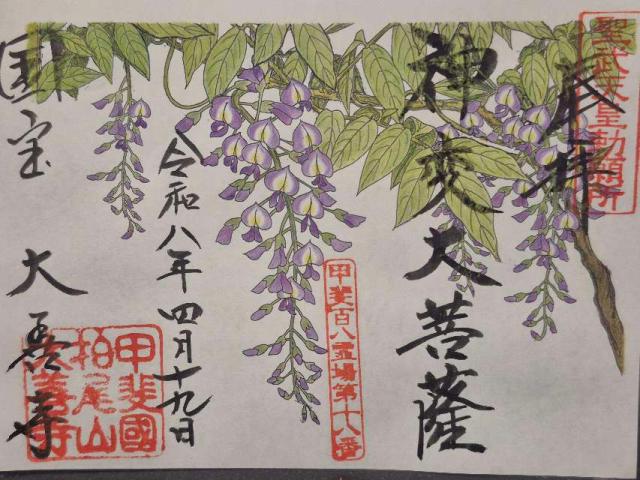 奉拝
聖武天皇勅願所
神変大菩薩
甲斐百八霊場第十八番
令和八年四月十九日
国宝 大善寺
甲斐國
柏尾山
大善寺